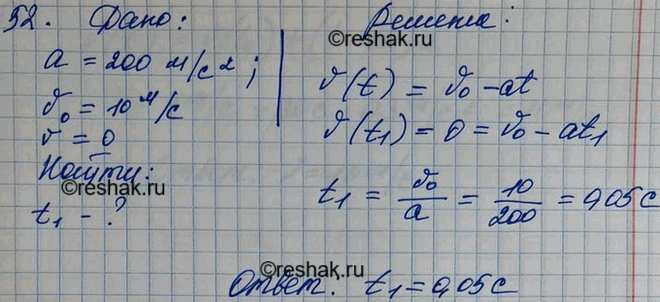 52. Дано:
a = 200 м/с²;
v₀ = 10 м/с
v = 0
Найти:
t₁ - ?
Решение:
©reshak.ru
v(t) = v₀ - at
v(t₁) = 0 = v₀ - at₁
t₁ = v₀/a = 10/200 = 0,05 c
©reshak.ru
©reshak.ru
Ответ: t₁ = 0,05 c